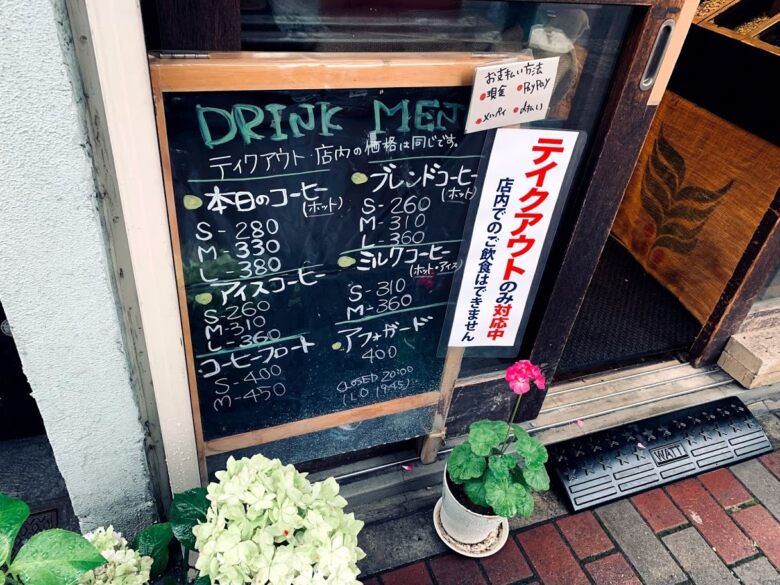 DRINK MEN
テイクアウト・店内の価格は同じです。
本日のコーヒー
(ホット)
S-280
M-330
L-380
アイスコーヒー
S-260
M-310
L-360
コーヒーフロート
S-400
M-450
ブレンドコーヒー
(ホット)
S-260
M-310
L-360
ミルクコーヒー
(ホット・アイス)
S-310
M-360
アフォガード
400
CLOSED 20:00
(L.O 19:45)
お支払い方法
現金 PayPay
メルペイ d払い
テイクアウトのみ対応中
店内でのご飲食はできません
WATT